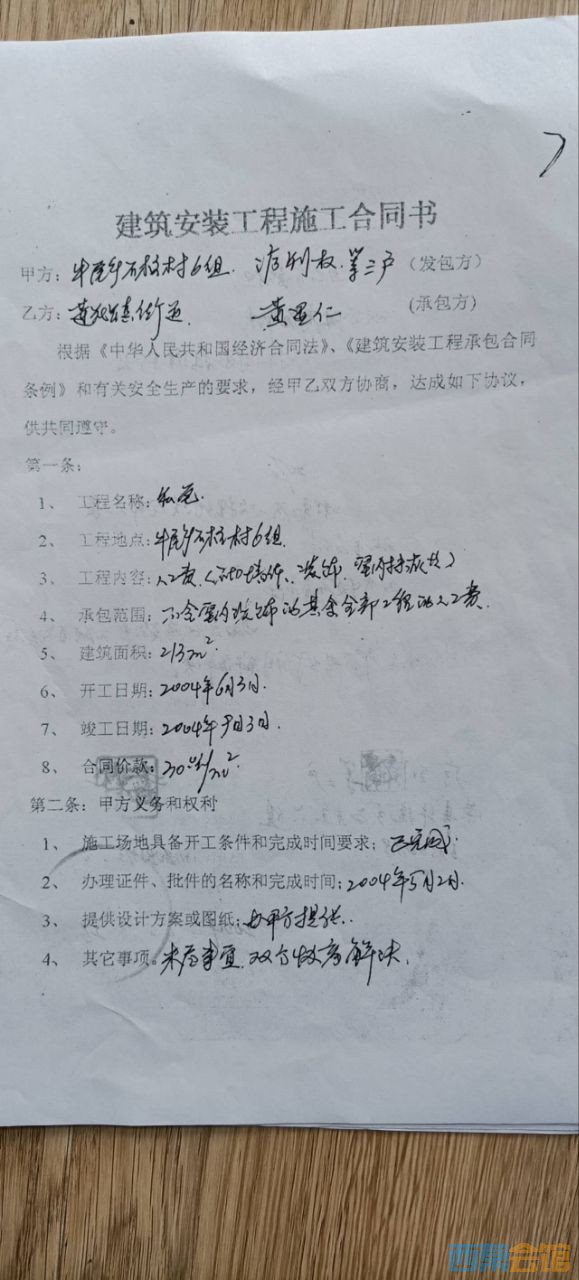 建筑安装工程施工合同书
甲方：牛尾乡石柱村6组. 利权.等三户（发包方）
乙方： 黄 仁 (承包方)
根据《中华人民共和国经济合同法》、《建筑安装工程承包合同
条例》和有关安全生产的要求，经甲乙双方协商，达成如下协议，
供共同遵守。
第一条：
1、 工程名称：
2、 工程地点：牛尾乡石柱村6组.
3、 工程内容：人工费
4、 承包范围：不含室内装饰的其余全部工程的人工费.
5、 建筑面积：213m².
6、 开工日期：2004年6月3日.
7、 竣工日期：2004年9月3日.
8、 合同价款： /m²
第二条：甲方义务和权利
1、 施工场地具备开工条件和完成时间要求；已完成.
2、 办理证件、批件的名称和完成时间；2004年5月2日.
3、 提供设计方案或图纸；由甲方提供.
4、 其它事项。未尽事宜.双方 解决.
西祠会馆